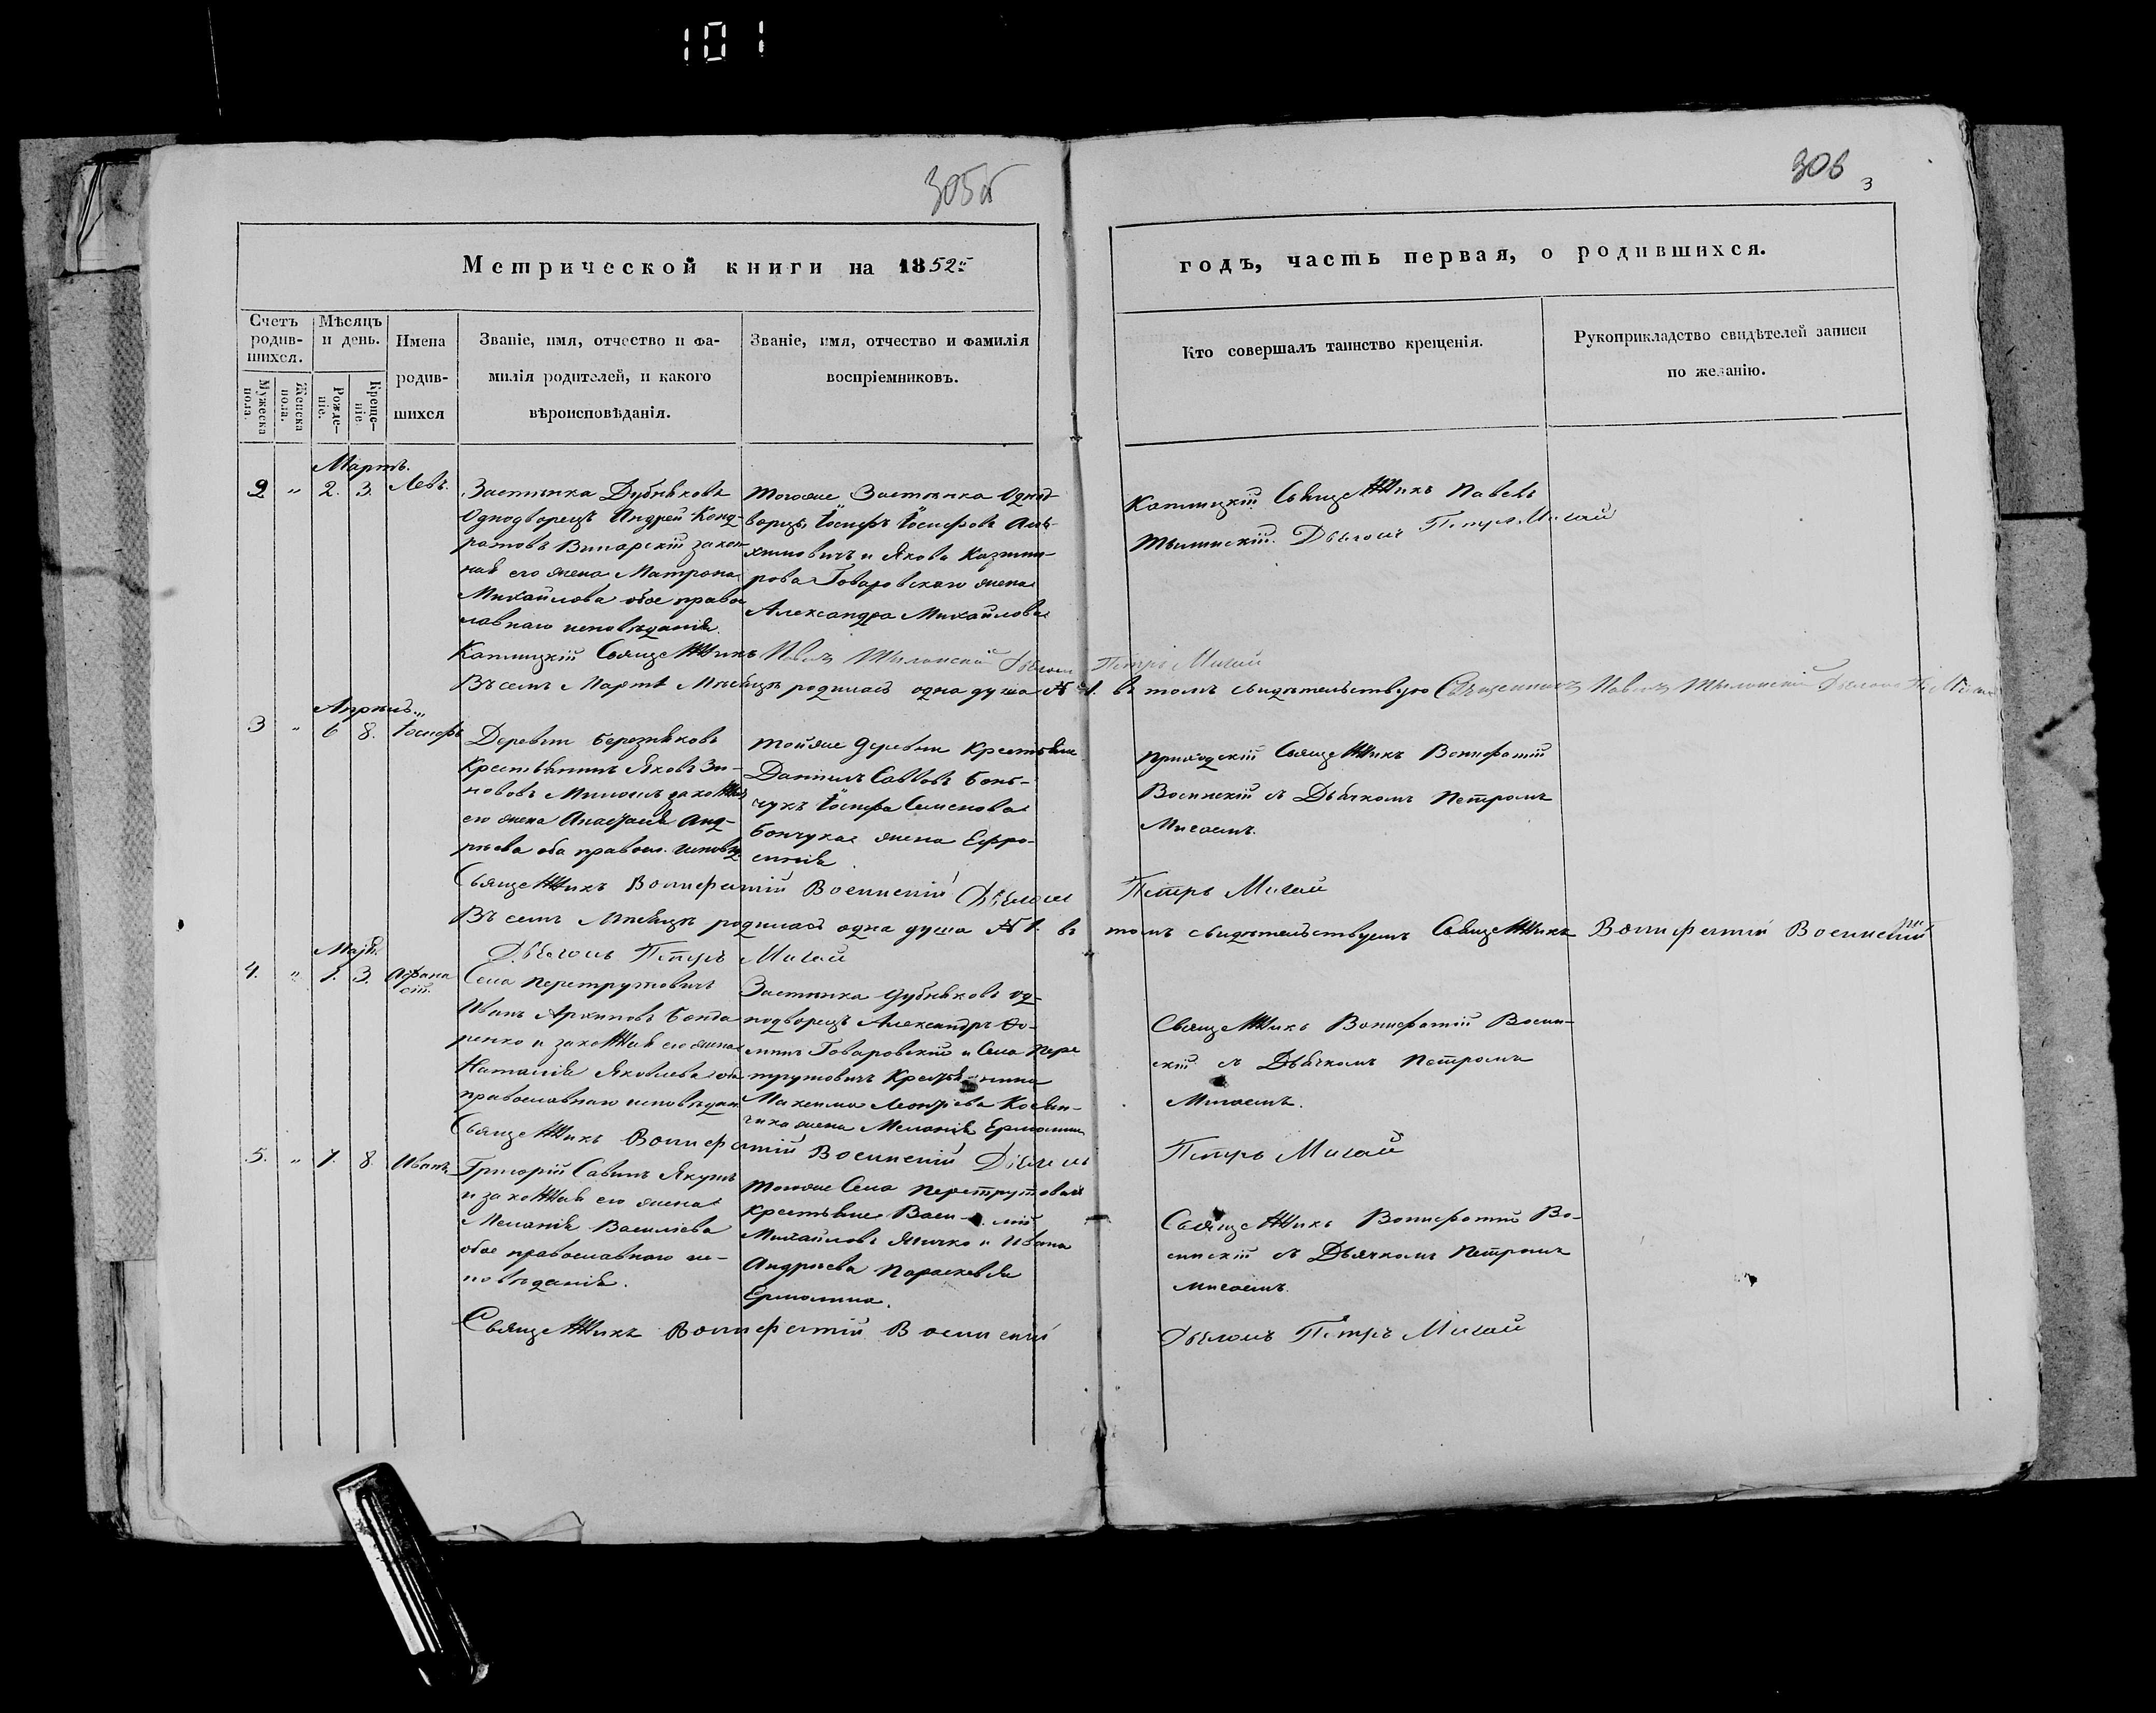 101
305б
306
3
Метрической книги на 1852й
годъ, часть первая, о родившихся.
Счетъ родив-шихся.
Мужеска пола.
Женска пола.
Мѣсяцъ и день.
Рожде-ніе.
Креще-ніе.
Имена
родив-
шихся
Званіе, имя, отчество и фа-
милія родителей, и какого
вѣроисповѣданія.
Званіе, имя, отчество и фамилія
воспріемниковъ.
Кто совершалъ таинство крещенія.
Рукоприкладство свидѣтелей записи
по желанію.
Мартъ.
2 " 2. 3. Левъ.
Застѣнка Дубняковъ
Однодворецъ Андрей Конд-
ратовъ Винарскій закон-
ная его жена Матрона
Михайлова обое право
славнаго исповѣданія.
тогоже Застѣнка Одно-
ворцы Іосифъ Іосифовъ
и Якова Казими-
рова Товаровскаго жена
Александра Михайлова
Священникъ Павелъ
Дьячокъ Петръ Мигай
Священникъ Павелъ Дьячокъ Петръ Мигай
Въ семъ Мартѣ Мѣсяцѣ родилась одна душа №1. въ томъ свидѣтельствую Священникъ Павелъ
Апрѣль
3 " 6 8. Іосифъ
Деревни Березняковъ
Крестьянинъ Яковъ Зи-
новъ законная
его жена Анастасія Анд-
рѣева оба правосл. исповѣд.
тойже деревни Крестьяне
Даніилъ Саввовъ Бон-
чукъ Іосифа Семенова
Бончука жена Евфро-
синія
Приходскій Священникъ Вонифатій
Воеинскій съ Дьячкомъ Петромъ
Мигаемъ.
Священникъ Вонифатій Дьячокъ Петръ Мигай
Въ семъ Мѣсяцѣ родилась одна душа №1. въ томъ свидѣтельствуемъ Священникъ Вонифатій
Дьячокъ Петръ Мигай
Маія.
4. " 1. 3. Афана
сій.
Села Перетрутовичъ
Иванъ Архиповъ Бонда
ренко и законная его жена
Наталія Яковлева оба
православнаго исповѣдан
Застѣнка Дубняковъ од-
нодворецъ Александръ Фо-
минъ Товаровскій и Села Пере
трутовичъ Крестьянина
Максима Леонтіева
жена Меланія
Священникъ Вонифатій
съ Дьячкомъ Петромъ
Мигаемъ.
Священникъ Вонифатій Дьячокъ Петръ Мигай
5. " 7. 8. Иванъ
Григорій Савинъ
и законная его жена
Меланія Василіева
обое православнаго ис-
повѣданія.
тогоже Села Перетрутовичъ
Крестьяне Васи-лій
Михайловъ и Ивана
Андрѣева Параскевія
Ермолина.
Священникъ Вонифатій
съ Дьячкомъ Петромъ
Мигаемъ.
Священникъ Вонифатій
Дьячокъ Петръ Мигай